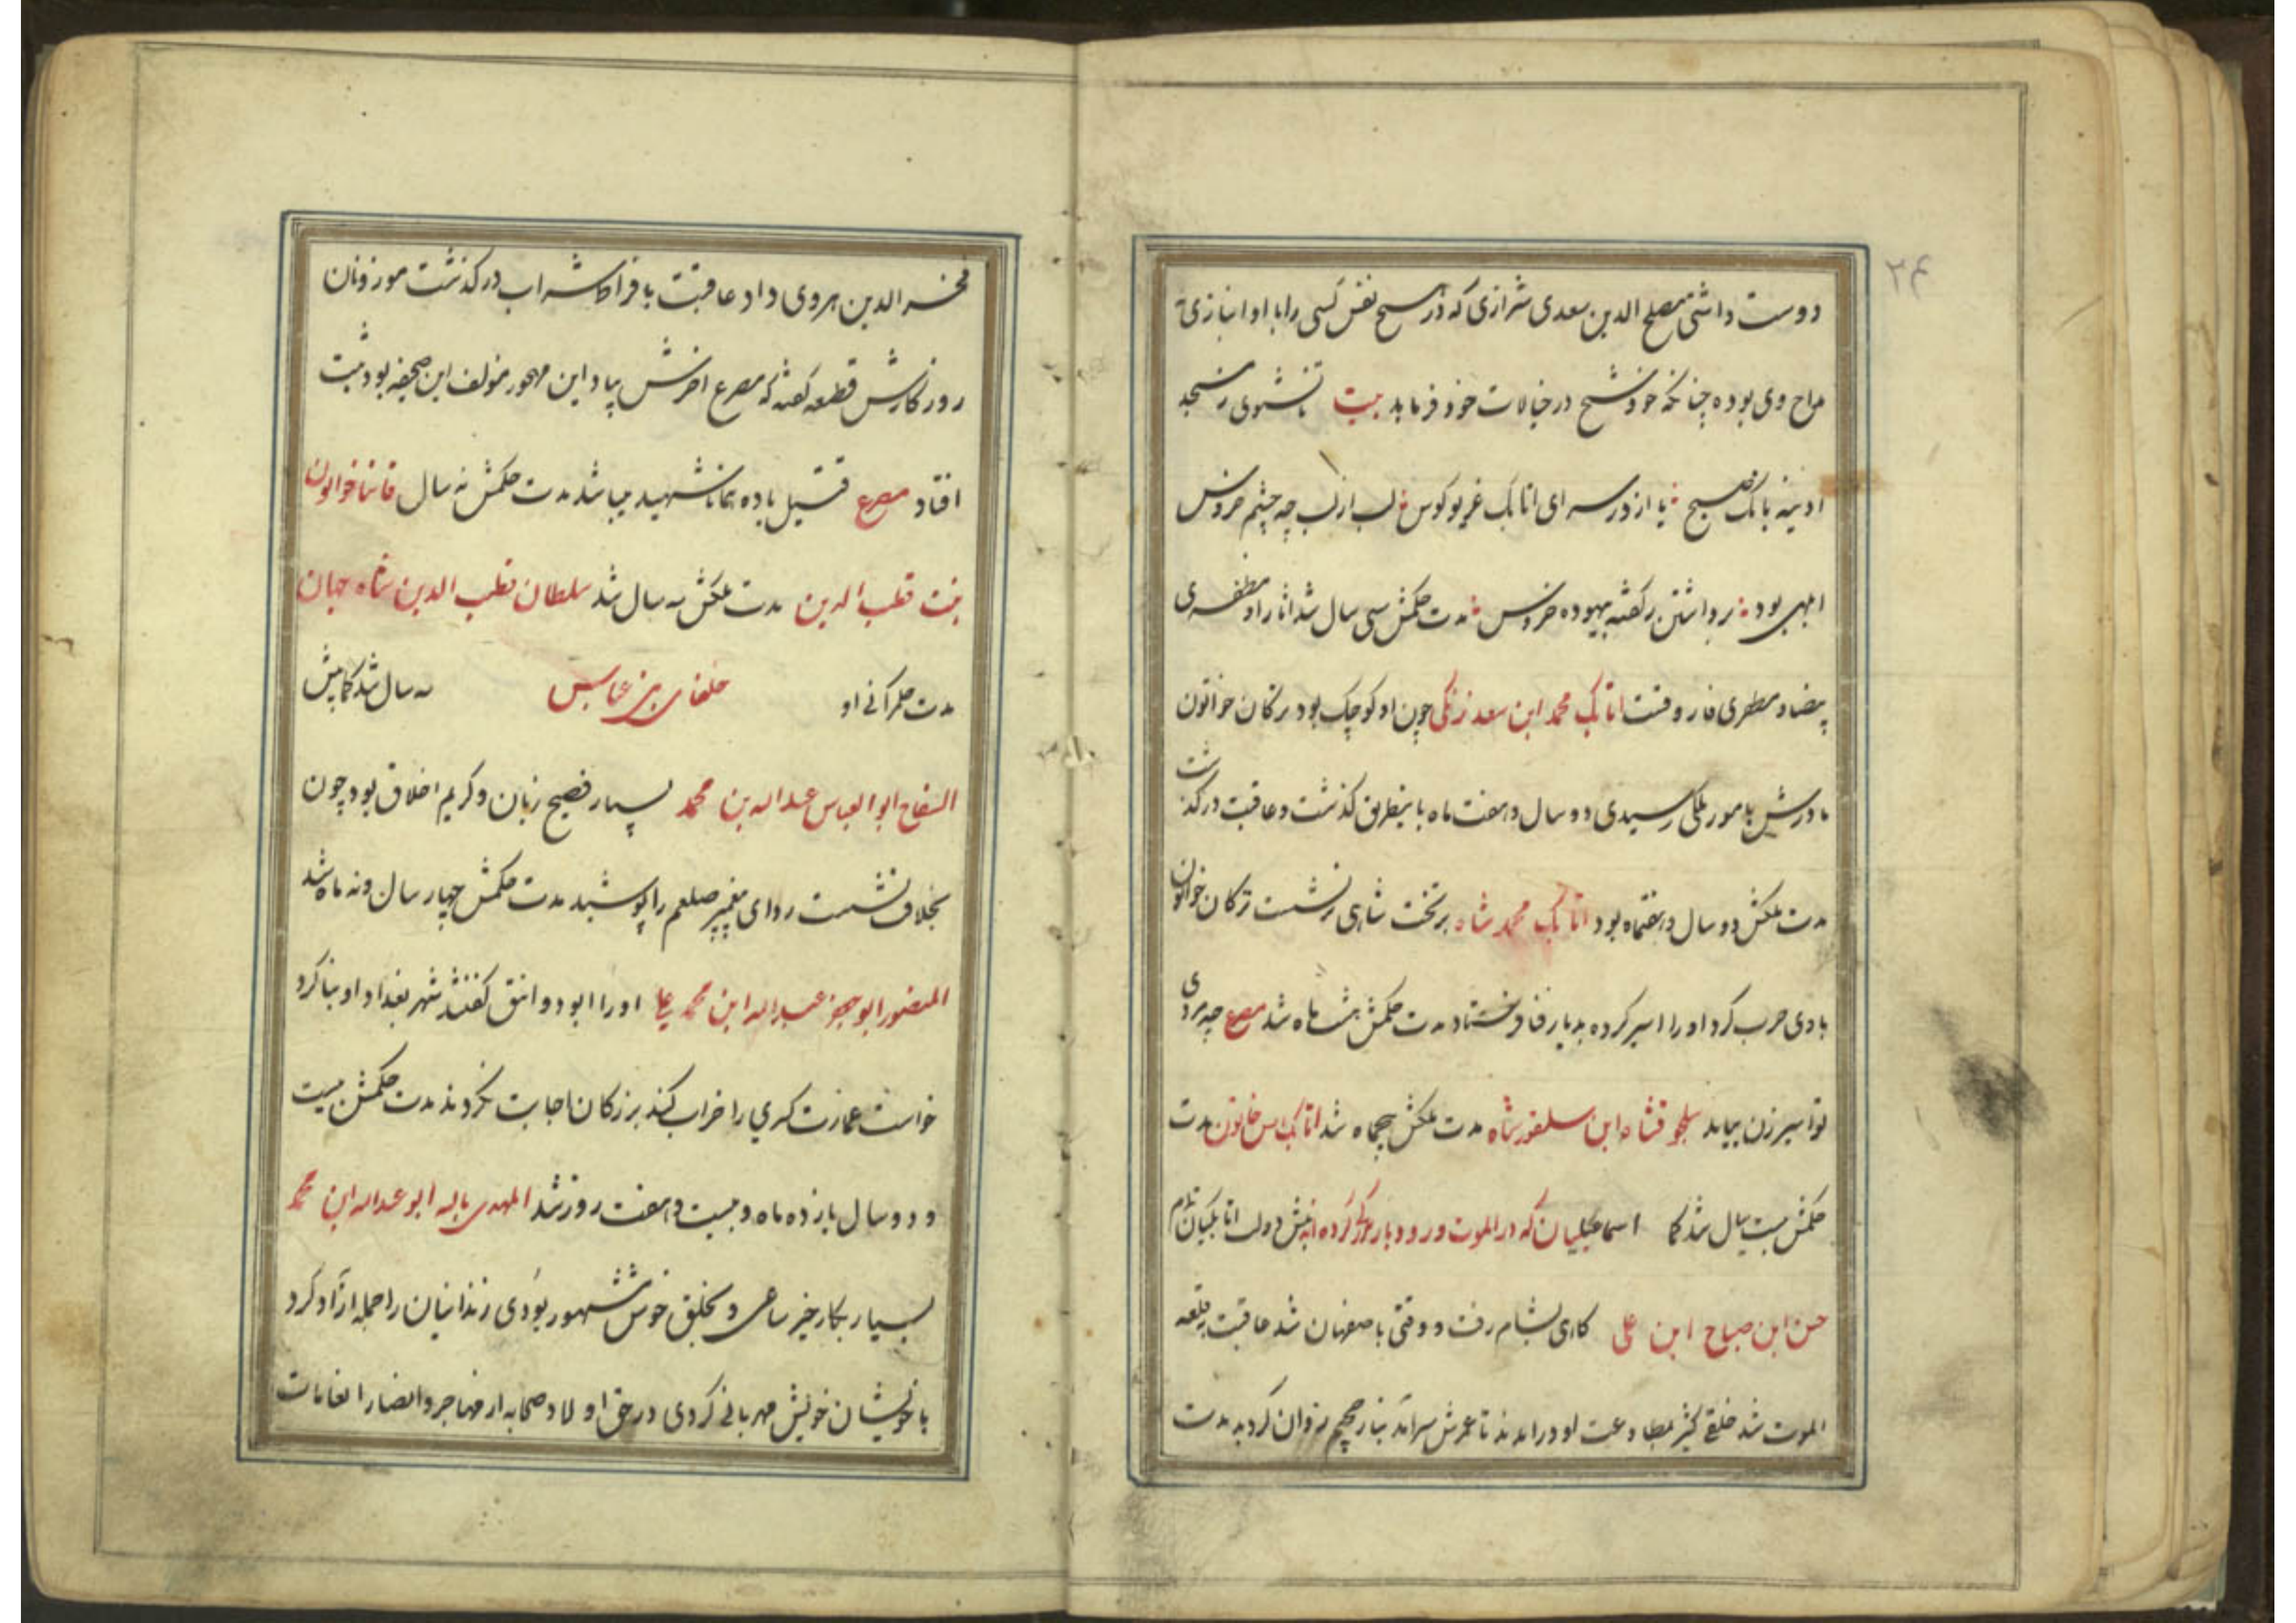 ۲۴
دوست داشتی مصلح الدین سعدی شرازی که در مسیح نفس کسی را با او انبازی
مداح وی بوده چنانکه خود شیخ در خیالات خود فرماید بیت تا نشنوی ز مسجد
ادینه بانک صبح یا از در سرای اتابک غریو کوس لب از لب چه چشم خروس
ابلهی بود برداشتن بر کفته بیهوده خروس مدت حکمش سی سال شد اثار او مظفری
بیضا و مطری فاروقست اتابک محمد ابن سعد زنکی چون او کوچک بود ترکان خواتون
مادرش بامور ملکی رسیدی دو سال و هفت ماه باینطریق کذشت و عاقبت درکذشت
مدت ملکش دو سال و هفتماه بود اتابک محمد شاه بر تخت شاهی نشست ترکان خواتون
با وی حرب کرد او را اسیر کرده بدیار فنا فرستاد مدت حکمش هشت ماه شد مصرع چه مردی
تو اسیر زن بیابد سلجوقشاه ابن سلغور شاه مدت ملکش پنجماه شد اتابک ابس خاتون مدت
حکمش بیست سال شد کما اسماعیلیان که در الموت و رودبار خروج کرده اند پیش دولت اتابکیان تمام
حسن ابن صباح ابن علی کاهی بشام رفت و وقتی باصفهان شد عاقبت بقلعه
الموت شد خلقی کثیر بمطاوعت او درامدند تا عمرش سرامد بنار جحیم روان کردید مدت
فخر الدین هروی داد عاقبت بافراط شراب درکذشت موزونان
روزکارش قطعه کفته که مصرع اخرش بیاد این مهجور مؤلف این صحیفه بود ثبت
افتاد مصرع قتیل باده همانا شهید میباشد مدت حکمش نه سال قاننا خواتون
بنت قطب الدین مدت ملکش سه سال شد سلطان قطب الدین شاه جهان
مدت حکمرانی او خلفای بنی عباس سه سال شد کمابیش
السفاح ابو العباس عبد الله بن محمد بسیار فصیح زبان و کریم اخلاق بود چون
بخلافت نشست ردای پیغمبر صلعم را پوشید مدت حکمش چهار سال و نه ماه شد
المنصور ابو جعفر عبد الله ابن محمد علی او را ابو دوانق کفتند شهر بغداد او بنا کرد
خواست عمارت کسری را خراب کند بزرکان اجابت نکردند مدت حکمش بیست
و دو سال یازده ماه و بیست و هفت روز شد المهدی بالله ابو عبد الله ابن محمد
بسیار بکار خیر ساعی و بخلق خوش مشهور بودی زندانیان را جمله ازاد کرد
با خویشان خویش مهربانی کردی در حق اولاد صحابه از مهاجر و انصار انعامات